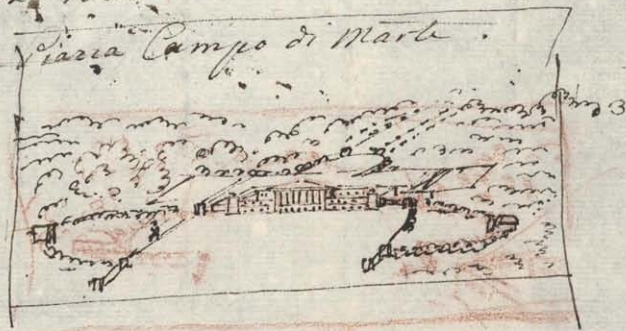 Piazza Campo di Marte.